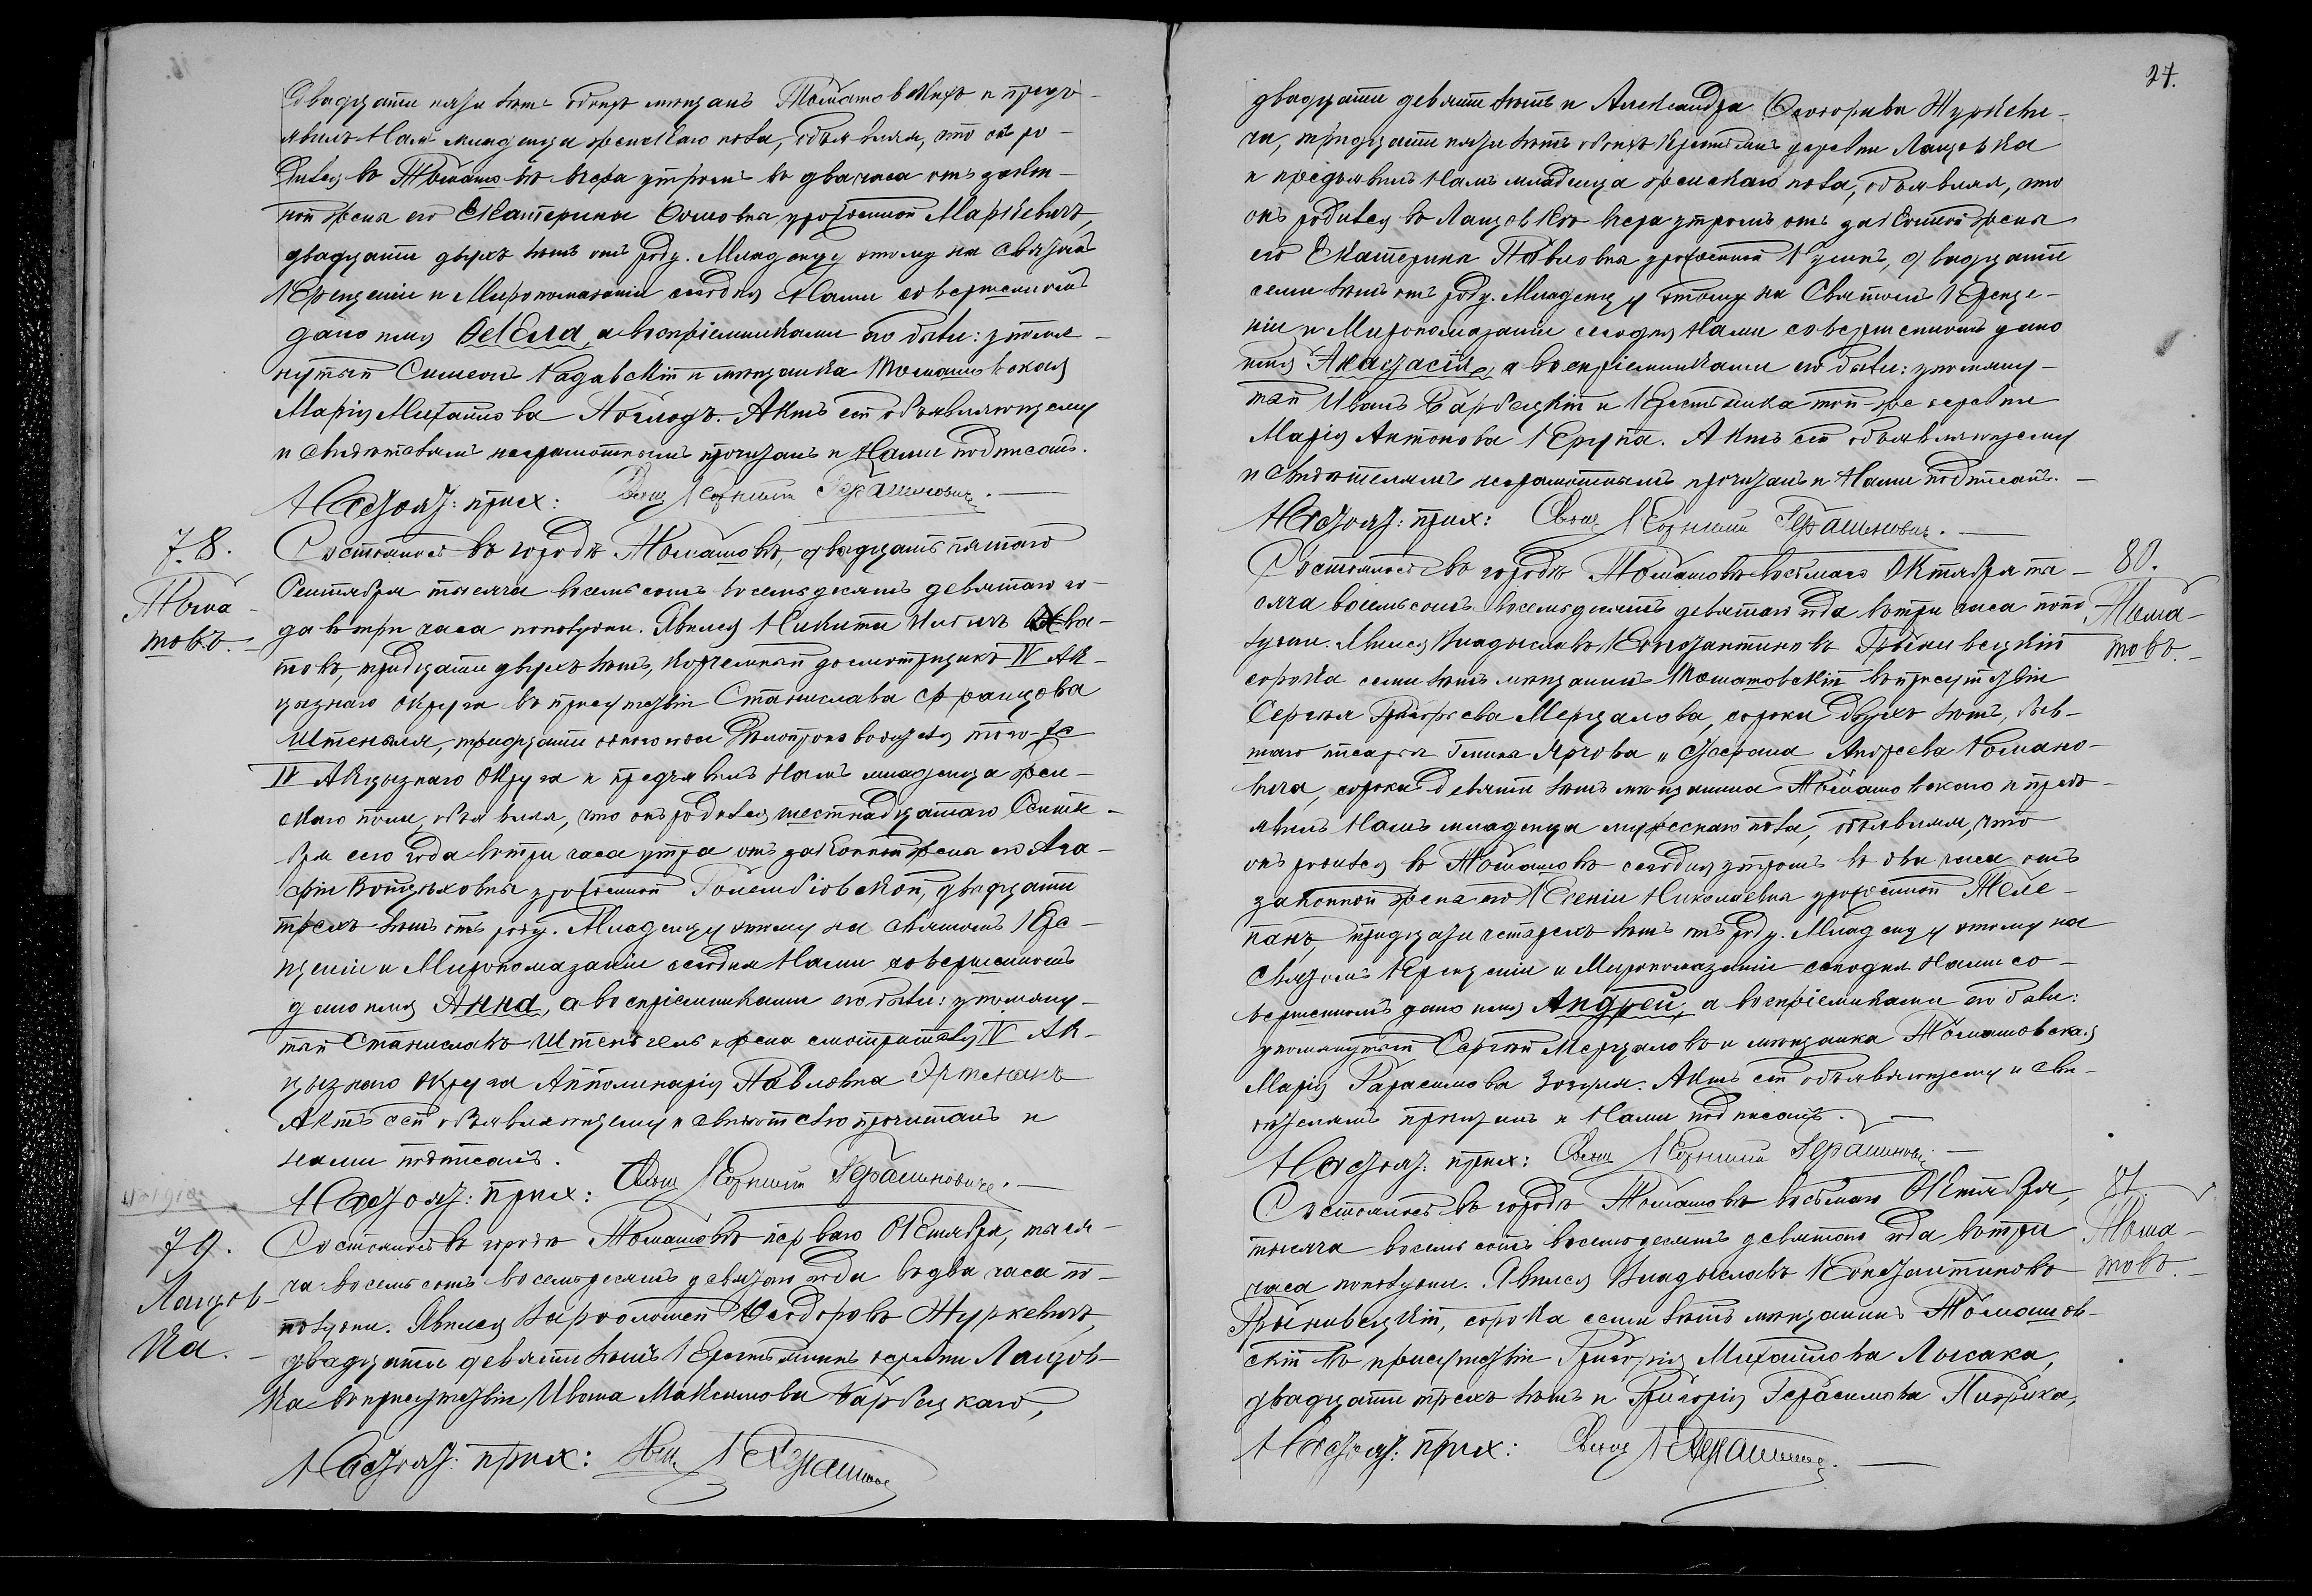 двадцати пяти лѣтъ обоихъ мѣщанъ Томашовскихъ и предъ-
явилъ Намъ младенца женскаго пола, объявляя, что онъ ро-
дился въ Томашовѣ вчера утромъ въ два часа отъ закон-
ной жены его Екатерины урожденной Маркевичъ,
двадцати двухъ лѣтъ отъ роду. Младенцу этому на Святомъ
Крещеніи и Мѵропомазаніи сегодня Нами совершенномъ
дано имя Ѳекла, а воспріемниками его были: упомя-
нутый Симеонъ и мѣщанка Томашовская
Марія Михайлова. Актъ сей объявляющему
и свидѣтелямъ неграмотнымъ прочитанъ и Нами подписанъ.
Настоят: прих: Свящ Корнилій Герашиновичъ.
78.
Тома-
шовъ.
Состоялось въ городѣ Томашовѣ, двадцать пятаго
Сентября тысяча восемьсотъ восемьдесятъ девятаго го-
да въ три часа пополудни. Явился Никита
тридцати двухъ лѣтъ, корчемный досмотрщикъ IV Ак-
цызнаго Округа въ присутствіи Станислава Францова
Штенгеля, тридцати того-же
IV Акцызнаго Округа и предъявилъ Намъ младенца жен-
скаго пола, объявляя, что онъ родился шестнадцатаго Сентя-
бря сего года въ три часа утра отъ законной жены его Ага-
фіи Войцѣховны урожденной Голембіовской, двадцати
трехъ лѣтъ отъ роду. Младенцу этому на Святомъ Кре-
щеніи и Мѵропомазаніи сегодня Нами совершенномъ
дано имя Анна, а воспріемниками его были: упомяну-
тый Станиславъ Штенгель и жена смотрителя IV Ак-
цызнаго Округа Апполинарія Павловна
Актъ сей объявляющему и свидѣтелю прочитанъ и
Нами подписанъ.
Настоят: прих: Свящ Корнилій Герашиновичъ.
79.
Лащов-
ка.
Состоялось въ городѣ Томашовѣ перваго Октября, тыся-
ча восемьсотъ восемьдесятъ девятаго года въ два часа по-
полудни. Явился Варѳоломей Ѳеодоровъ Журкевичъ,
двадцати девяти лѣтъ Крестьянинъ деревни Лащов-
ка въ присутствіи Ивана Максимова Барбецкаго,
Настоят: прих: Свящ К Герашинов
27.
двадцати девяти лѣтъ и Александра Ѳеодорова Журкеви-
ча, тридцати пяти лѣтъ обоихъ Крестьянъ деревни Лащовка
и предъявилъ Намъ младенца женскаго пола, объявляя, что
онъ родился въ Лащовкѣ вчера утромъ отъ законной жены
его Екатерины Павловны урожденной двадцати
семи лѣтъ отъ роду. Младенцу этому на Святомъ Креще-
ніи и Мѵропомазаніи сегодня Нами совершенномъ дано
имя Анастасія, а воспріемниками его были: упомяну-
тый Иванъ Барбецкій и Крестьянка той-же деревни
Марія Антонова Крупа. Актъ сей объявляющему
и свидѣтелямъ неграмотнымъ прочитанъ и Нами подписанъ.
Настоят: прих: Свящ Корнилій Герашиновичъ.
80.
Тома-
шовъ.
Состоялось въ городѣ Томашовѣ восьмаго Октября ты-
сяча восемьсотъ восемьдесятъ девятаго года въ три часа попо-
лудни. Явился Владыславъ Константиновъ Грыневецкій
сорока семи лѣтъ мѣщанинъ Томашовскій въ присутствіи
Сергѣя Григорьева Мерцалова, сорока двухъ лѣтъ, быв-
шаго писаря Гмины Ярчова и Стефана Андреева Романо-
вича, сорока девяти лѣтъ мѣщанина Томашовскаго и предъ-
явилъ Намъ младенца мужескаго пола, объявляя, что
онъ родился въ Томашовѣ сегодня утромъ въ два часа отъ
законной жены его Ксеніи Николаевны урожденной Желе-
панъ тридцати четырехъ лѣтъ отъ роду. Младенцу этому на
Святомъ Крещеніи и Мѵропомазаніи сегодня Нами со-
вершенномъ дано имя Андрей, а воспріемниками его были:
упомянутый Сергѣй Мерцаловъ и мѣщанка Томашовская
Марія Гарасимова. Актъ сей объявляющему и сви-
дѣтелямъ прочитанъ и Нами подписанъ.
Настоят: прих: Свящ Корнилій Герашинович
81
Тома-
шовъ.
Состоялось въ городѣ Томашовѣ восьмаго Октября,
тысяча восемьсотъ восемьдесятъ девятаго года въ три
часа пополудни. Явился Владыславъ Константиновъ
Грыневецкій, сорока семи лѣтъ мѣщанинъ Томашов-
скій въ присутствіи Григорія Михайлова Лысака,
двадцати трехъ лѣтъ и Григорія Герасимова
Настоят: прих: Свящ К Герашинов